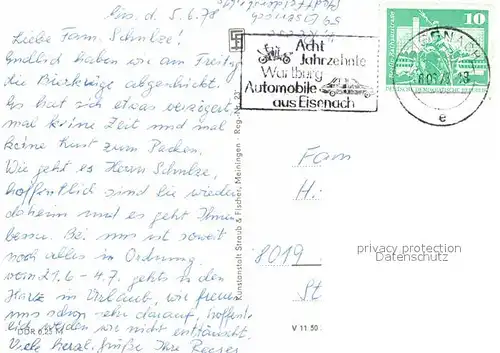 Ess. d. 5.6.78
Liebe Fam. Schulze!
Endlich haben wir am Freitag
die Bierkrüge abgeschickt.
Es hat sich etwas verzögert,
mal keine Zeit und mal
keine Lust zum Packen.
Wie geht es Herrn Schulze,
hoffentlich sind Sie wieder
daheim und es geht Ihnen
besser. Bei uns ist soweit
noch alles in Ordnung.
vom 21.6 - 4.7. gehts in den
Harz in Urlaub, wir freuen
uns schon sehr darauf, hoffent-
lich werden wir nicht enttäuscht.
Viele herzl. Grüße Ihre
DDR 0,25 M
Kunstanstalt Straub & Fischer, Meiningen · Reg.-Nr. 21
V 11 50
Acht
Jahrzehnte
Wartburg
Automobile
aus Eisenach
10
DEUTSCHE DEMOKRATISCHE REPUBLIK
e
Fam
H:
8019
St
privacy protection
Datenschutz